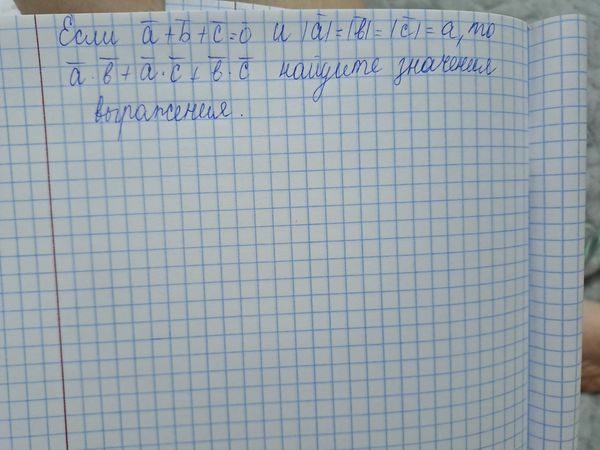 Если a̅ + b̅ + c̅ = 0̅ и |a̅| = |b̅| = |c̅| = a, то
a̅ · b̅ + a̅ · c̅ + b̅ · c̅ найдите значения
выражения.